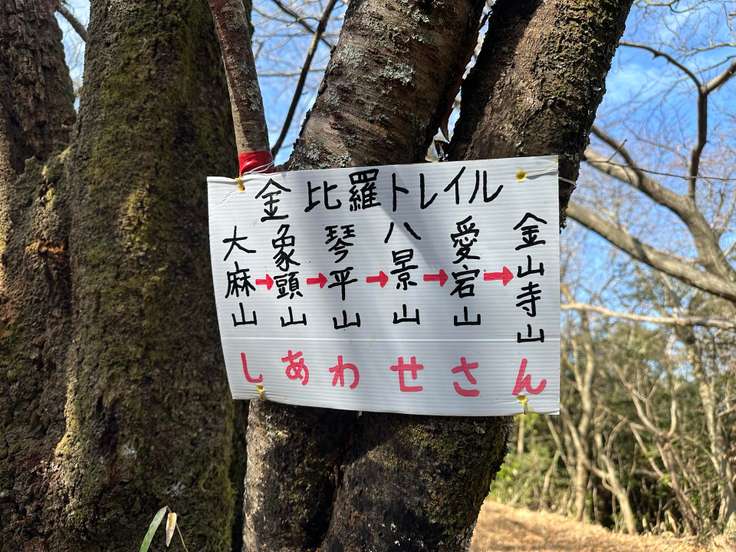 金比羅トレイル
大麻山→象頭山→琴平山→八景山→愛宕山→金山寺山
しあわせさん